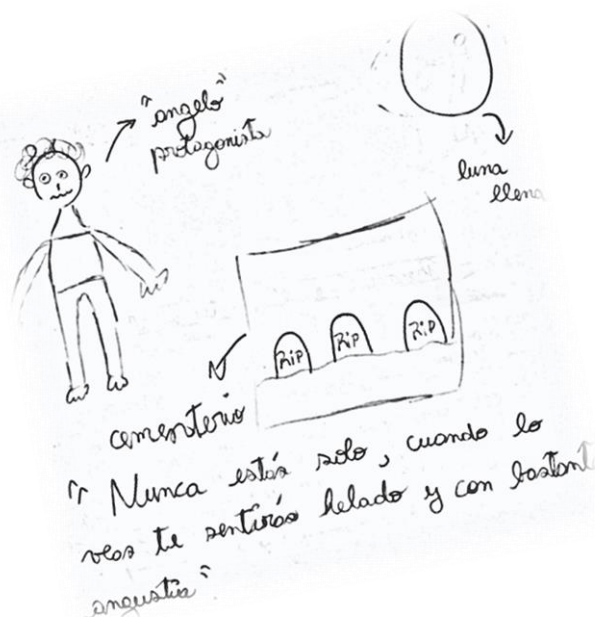 "angelo"
protagonista
luna
llena
RIP RIP RIP
cementerio
"Nunca estás solo, cuando lo
veas te sentirás helado y con bastant
angustia"